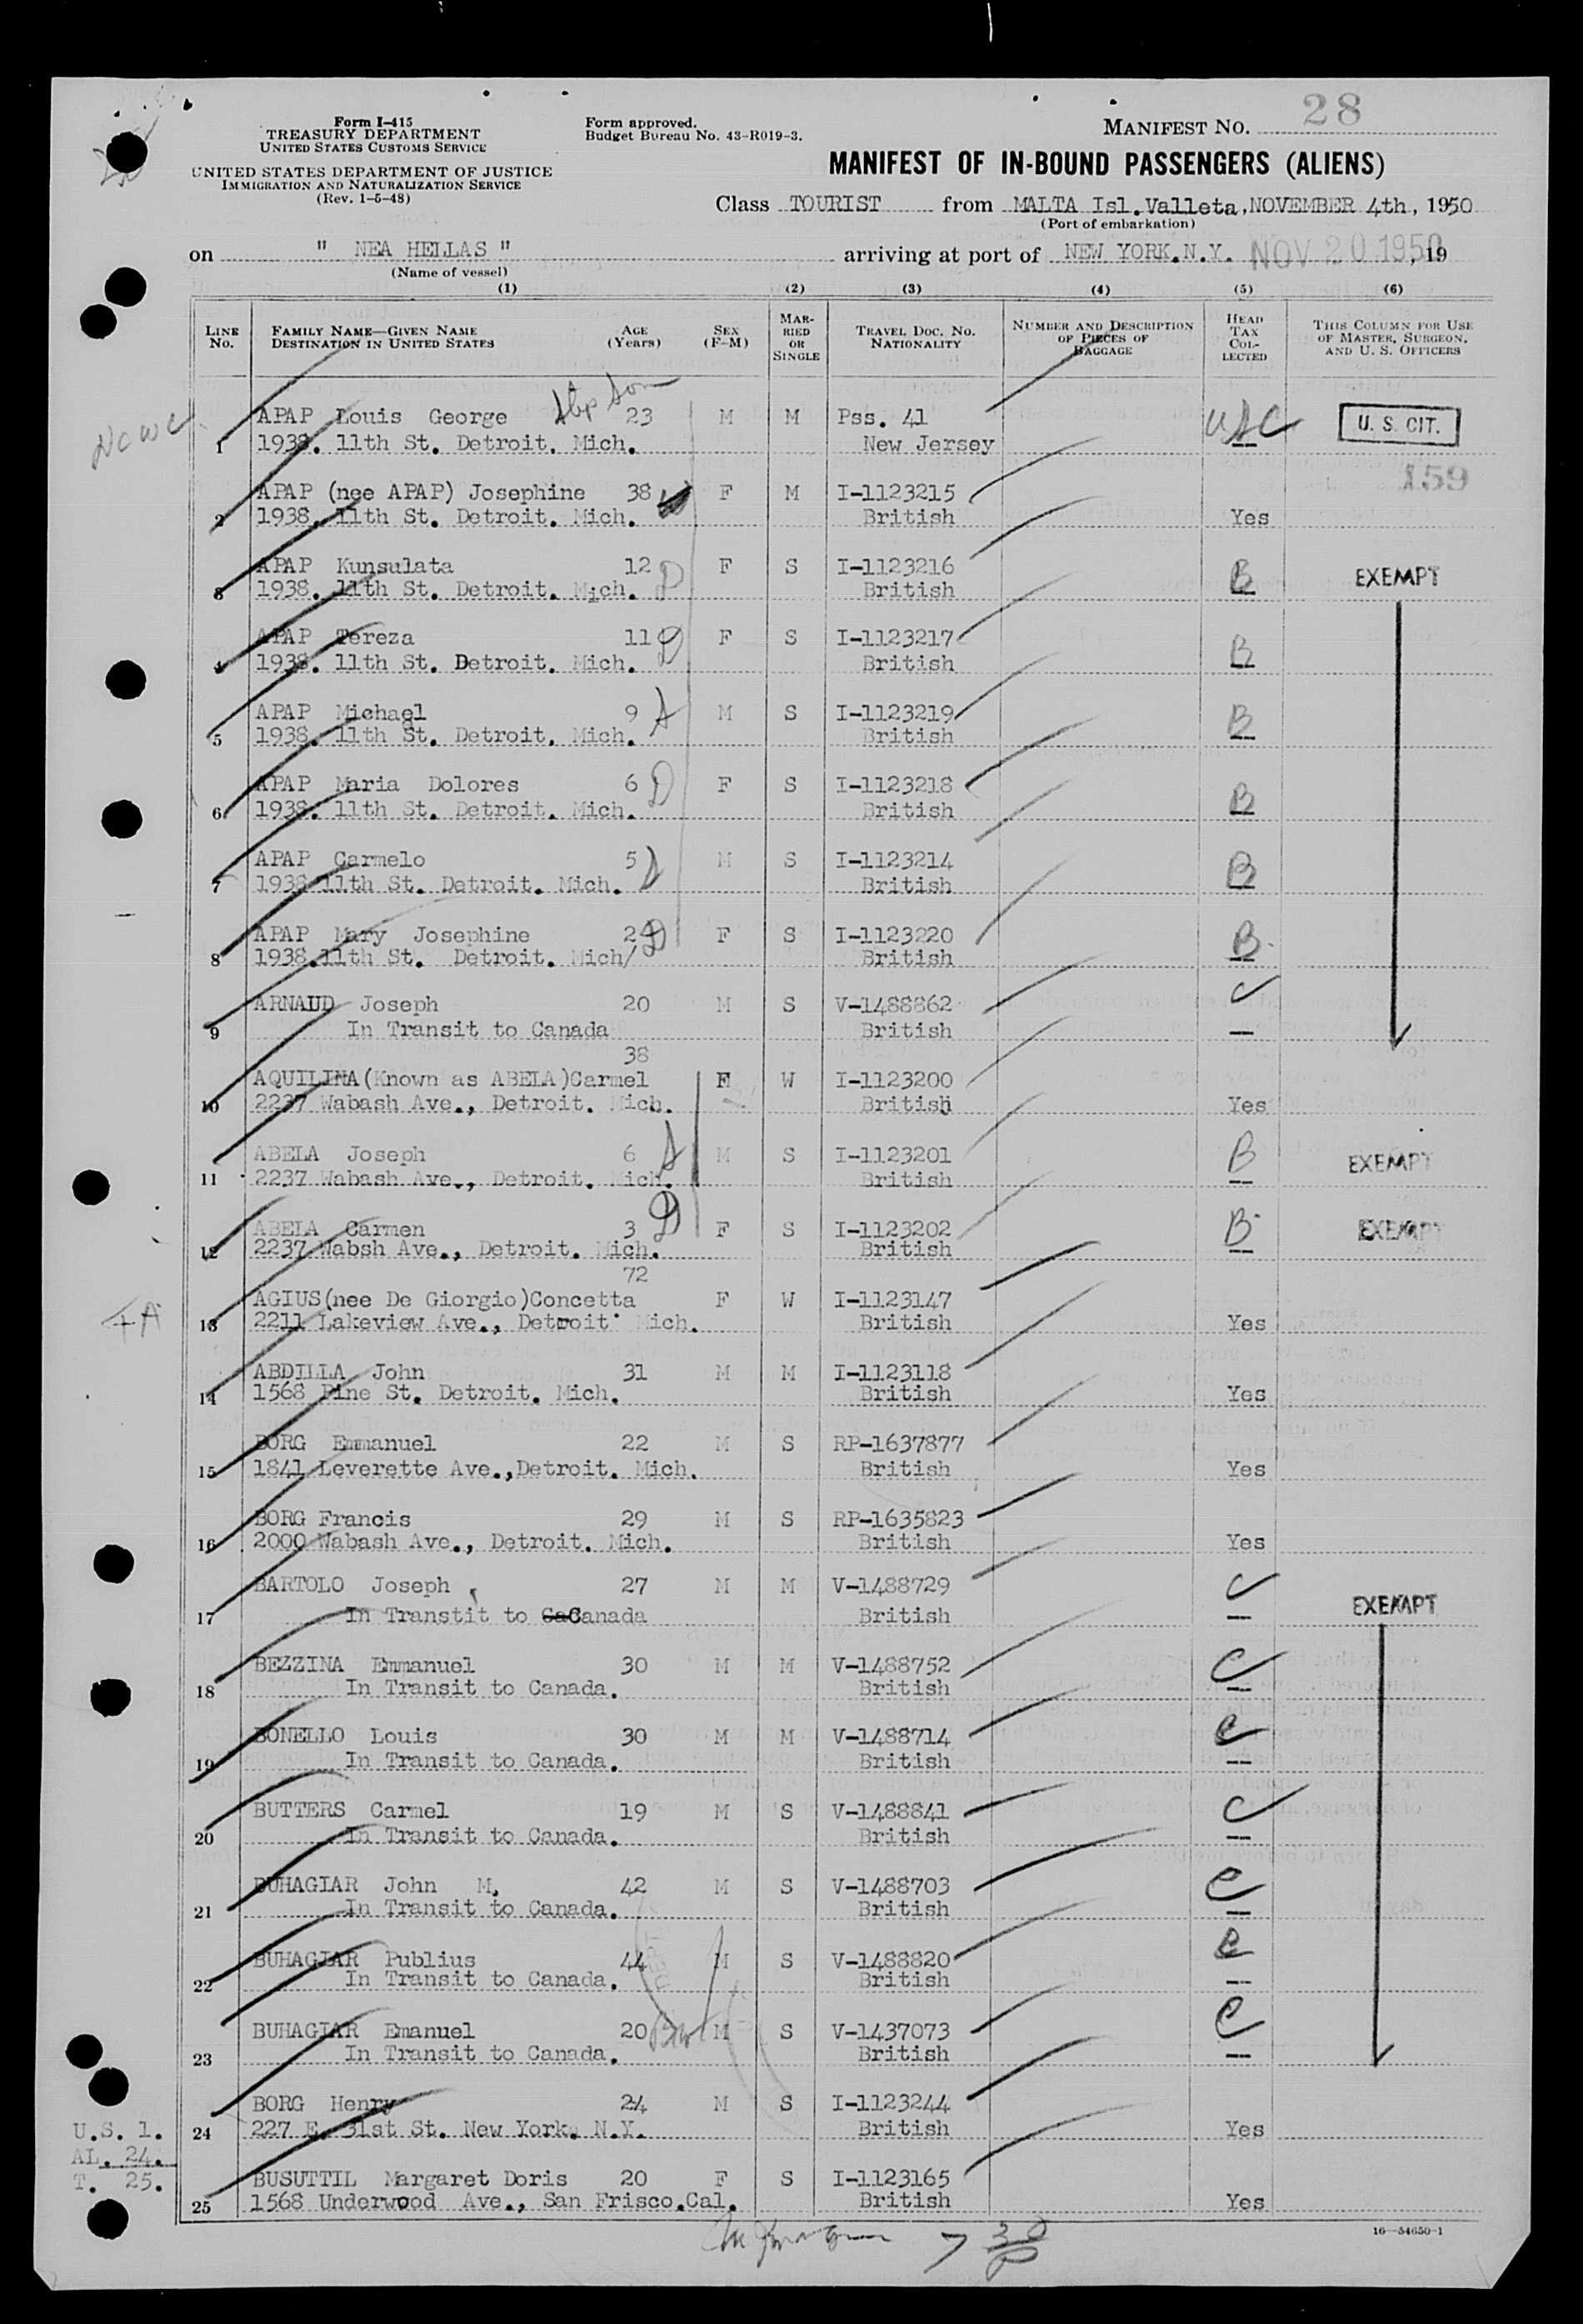 28
Form I-415
TREASURY DEPARTMENT
UNITED STATES CUSTOMS SERVICE
UNITED STATES DEPARTMENT OF JUSTICE
IMMIGRATION AND NATURALIZATION SERVICE
(Rev. 1-5-48)
Form approved.
Budget Bureau No. 43-R019-3.
MANIFEST NO.
MANIFEST OF IN-BOUND PASSENGERS (ALIENS)
Class TOURIST from MALTA Isl.Valleta,NOVEMBER 4th, 1950
(Port of embarkation)
on " NEA HELLAS " arriving at port of NEW YORK.N.Y. NOV 20 1950, 19
(Name of vessel)
(1) (2) (3) (4) (5) (6)
LINE No. FAMILY NAME—GIVEN NAME DESTINATION IN UNITED STATES AGE (Years) SEX (F-M) MARRIED OR SINGLE TRAVEL DOC. NO. NATIONALITY NUMBER AND DESCRIPTION OF PIECES OF BAGGAGE HEAD TAX COLLECTED THIS COLUMN FOR USE OF MASTER, SURGEON, AND U. S. OFFICERS
APAP Louis George Step Son 23 M M Pss. 41 USC U. S. CIT.
1 1938. 11th St. Detroit. Mich. New Jersey
159
APAP (nee APAP) Josephine 38 F M I-1123215
2 1938. 11th St. Detroit. Mich. British Yes
APAP Kunsulata 12 D F S I-1123216 B EXEMPT
3 1938. 11th St. Detroit. Mich. British
APAP Tereza 11 D F S I-1123217 B
4 1938. 11th St. Detroit. Mich. British
APAP Michael 9 S M S I-1123219 B
5 1938. 11th St. Detroit. Mich. British
APAP Maria Dolores 6 D F S I-1123218 B
6 1938. 11th St. Detroit. Mich. British
APAP Carmelo 5 S M S I-1123214 B
7 1938 11th St. Detroit. Mich. British
APAP Mary Josephine 2 D F S I-1123220 B
8 1938.11th St. Detroit. Mich/ British
ARNAUD Joseph 20 M S V-1488862
9 In Transit to Canada British
38
AQUILINA(Known as ABELA)Carmel F W I-1123200
10 2237 Wabash Ave., Detroit. Mich. British Yes
ABELA Joseph 6 S M S I-1123201 B EXEMPT
11 2237 Wabash Ave., Detroit. Mich. British
ABELA Carmen 3 D F S I-1123202 B EXEMPT
12 2237 Wabsh Ave., Detroit. Mich. British
72
AGIUS(nee De Giorgio)Concetta F W I-1123147
13 2211 Lakeview Ave., Detroit Mich. British Yes
ABDILLA John 31 M M I-1123118
14 1568 Pine St. Detroit. Mich. British Yes
BORG Emmanuel 22 M S RP-1637877
15 1841 Leverette Ave.,Detroit. Mich. British Yes
BORG Francis 29 M S RP-1635823
16 2000 Wabash Ave., Detroit. Mich. British Yes
BARTOLO Joseph 27 M M V-1488729 C EXEMPT
17 In Transtit to CaCanada British
BEZZINA Emmanuel 30 M M V-1488752 C
18 In Transit to Canada. British
BONELLO Louis 30 M M V-1488714 C
19 In Transit to Canada. British
BUTTERS Carmel 19 M S V-1488841 C
20 In Transit to Canada. British
BUHAGIAR John M. 42 M S V-1488703 C
21 In Transit to Canada. British
BUHAGIAR Publius 44 M S V-1488820 C
22 In Transit to Canada. British
BUHAGIAR Emanuel 20 M S V-1437073 C
23 In Transit to Canada. British
BORG Henry 24 M S I-1123244
24 227 E. 31st St. New York. N.Y. British Yes
BUSUTTIL Margaret Doris 20 F S I-1123165
25 1568 Underwood Ave., San Frisco.Cal. British Yes
U.S. 1.
AL. 24.
T. 25.
16—54650-1